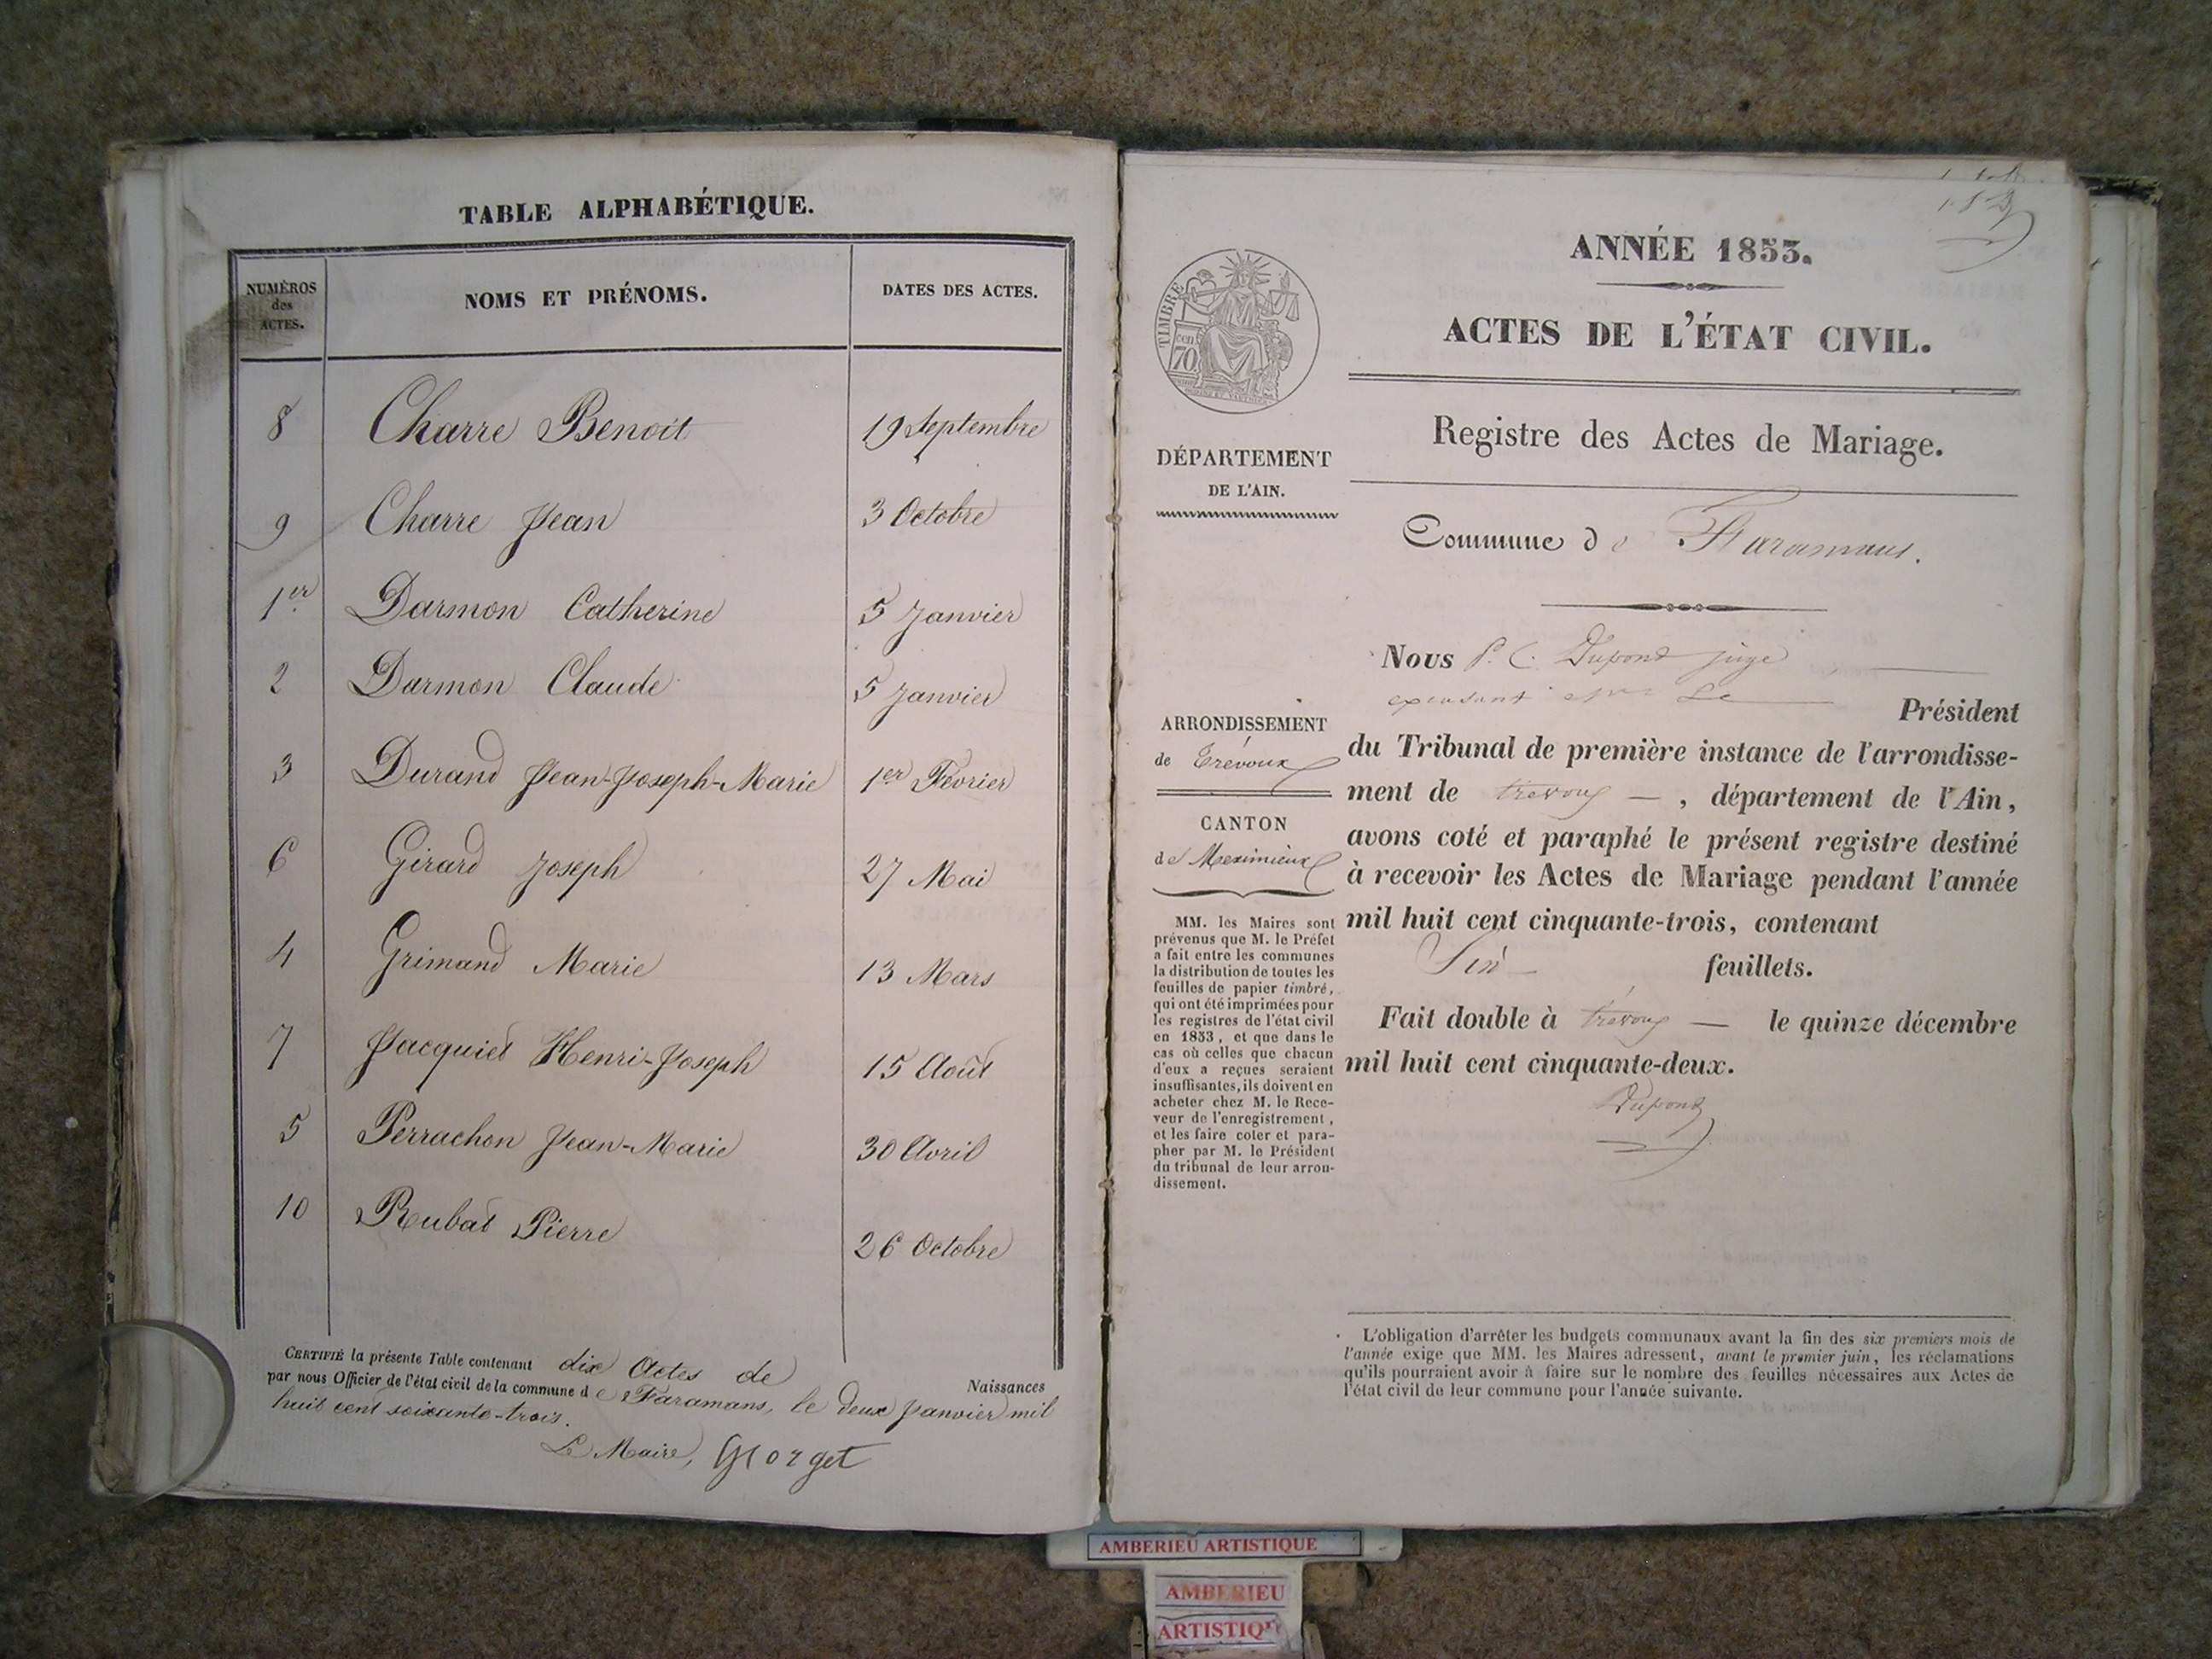 TABLE ALPHABÉTIQUE.
NUMÉROS des ACTES. NOMS ET PRÉNOMS. DATES DES ACTES.
8 Charre Benoit 19 Septembre
9 Charre Jean 3 Octobre
1er Darmon Catherine 5 Janvier
2 Darmon Claude 5 Janvier
3 Durand Jean-Joseph-Marie 1er Février
6 Girard Joseph 27 Mai
4 Grimand Marie 13 Mars
7 Jacquiet Henri-Joseph 15 Août
5 Perrachon Jean-Marie 30 Avril
10 Rubat Pierre 26 Octobre
CERTIFIÉ la présente Table contenant dix Actes de Naissances
par nous Officier de l'état civil de la commune de Faramans, le deux Janvier mil
huit cent soixante-trois.
Le Maire, Georget
TIMBRE
cen
70
ANNÉE 1853.
ACTES DE L'ÉTAT CIVIL.
Registre des Actes de Mariage.
DÉPARTEMENT
DE L'AIN.
Commune de Faramans.
ARRONDISSEMENT
de Trévoux
CANTON
de Meximieux
MM. les Maires sont
prévenus que M. le Préfet
a fait entre les communes
la distribution de toutes les
feuilles de papier timbré,
qui ont été imprimées pour
les registres de l'état civil
en 1853, et que dans le
cas où celles que chacun
d'eux a reçues seraient
insuffisantes, ils doivent en
acheter chez M. le Rece-
veur de l'enregistrement,
et les faire coter et para-
pher par M. le Président
du tribunal de leur arron-
dissement.
Nous P. C. Dupond juge
Le Président
du Tribunal de première instance de l'arrondisse-
ment de trevoux , département de l'Ain,
avons coté et paraphé le présent registre destiné
à recevoir les Actes de Mariage pendant l'année
mil huit cent cinquante-trois, contenant
Six feuillets.
Fait double à trévoux le quinze décembre
mil huit cent cinquante-deux.
Dupond
L'obligation d'arrêter les budgets communaux avant la fin des six premiers mois de
l'année exige que MM. les Maires adressent, avant le premier juin, les réclamations
qu'ils pourraient avoir à faire sur le nombre des feuilles nécessaires aux Actes de
l'état civil de leur commune pour l'année suivante.
AMBERIEU ARTISTIQUE
AMBERIEU
ARTISTIQ